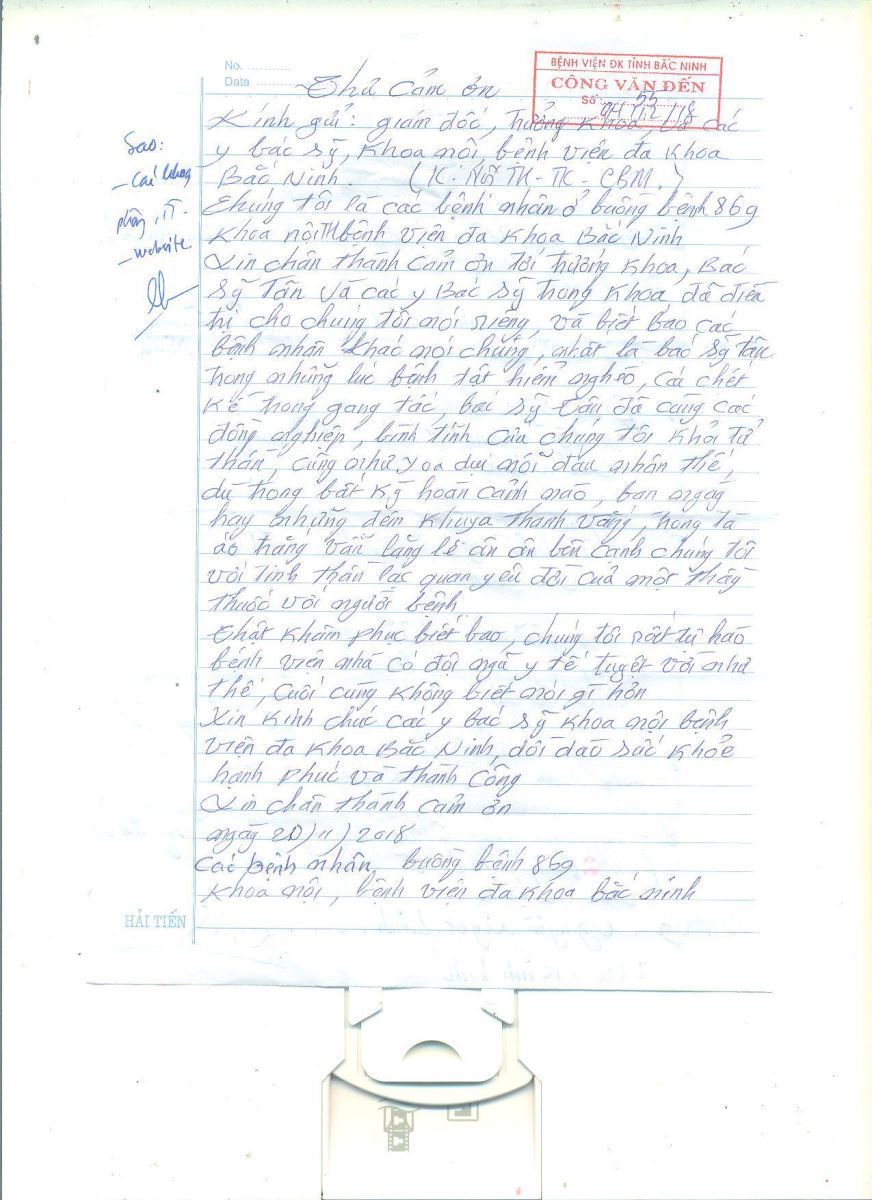 No. ............
Date ............
BỆNH VIỆN ĐK TỈNH BẮC NINH
CÔNG VĂN ĐẾN
Số: 55
04/12/18
Thư Cảm ơn
Kính gửi: giám đốc, trưởng khoa và các
y bác sỹ, khoa nội, bệnh viện đa khoa
Bắc Ninh. (K. Nội TM - TK - CBM.)
Sao:
- Các khoa
phòng, IT.
- website
Chúng tôi là các bệnh nhân ở buồng bệnh 869
khoa nội TM bệnh viện đa khoa Bắc Ninh
Xin chân thành cảm ơn tới trưởng khoa, Bác
sỹ Tân và các y Bác sỹ trong khoa, đã điều
trị cho chúng tôi nói riêng, và biết bao các
bệnh nhân khác nói chung, nhất là bác sỹ Tân
trong những lúc bệnh tật hiểm nghèo, cái chết
kề trong gang tấc, bác sỹ Tân đã cùng các
đồng nghiệp, bình tĩnh cứu chúng tôi khỏi tử
thần, cũng như xoa dụi nỗi đau nhân thế,
dù trong bất kỳ hoàn cảnh nào, ban ngày
hay những đêm khuya thanh vắng, trong tà
áo trắng vẫn lặng lẽ ân cần bên cạnh chúng tôi
với tinh thần lạc quan yêu đời của một thầy
thuốc với người bệnh
Thật khâm phục biết bao, chúng tôi rất tự hào
bệnh viện nhà có đội ngũ y tế tuyệt vời như
thế, cuối cùng không biết nói gì hơn
Xin kính chúc các y bác sỹ khoa nội bệnh
viện đa khoa Bắc Ninh, dồi dào sức khỏe
hạnh phúc và thành công
Xin chân thành cảm ơn
ngày 20/11/2018
Các bệnh nhân, buồng bệnh 869
khoa nội, bệnh viện đa khoa bắc ninh
HẢI TIẾN